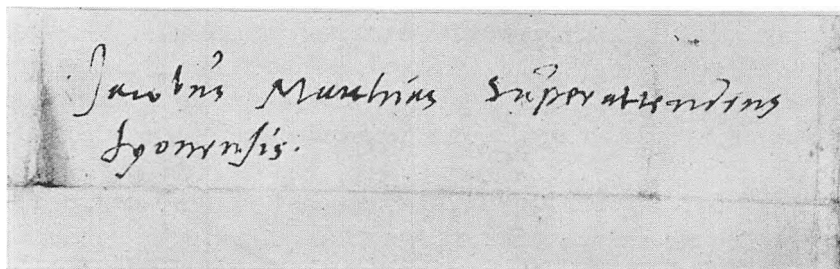 Jacobus Matthias Superattendens
Fyonensis.